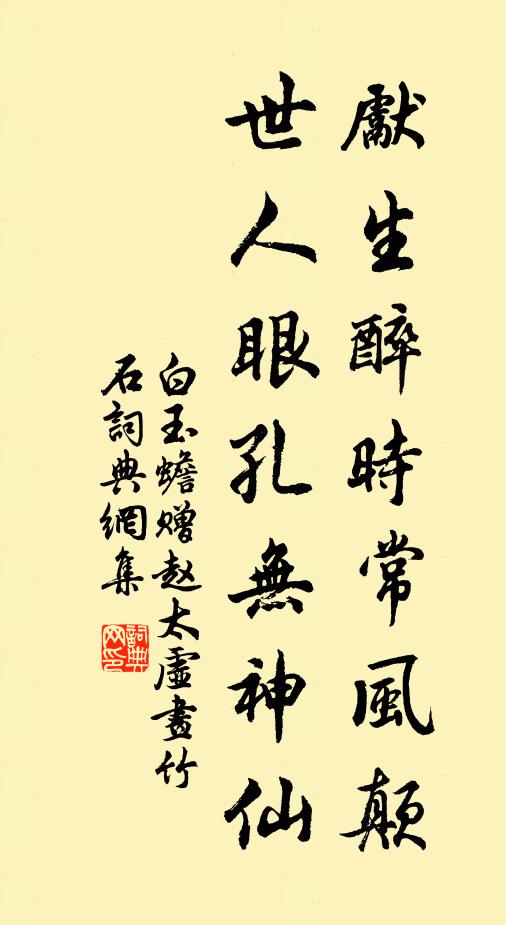 獻生醉時常風顛
世人眼孔無神仙
白玉蟾赠赵太虛畫竹
石詞典網集
詞典網印